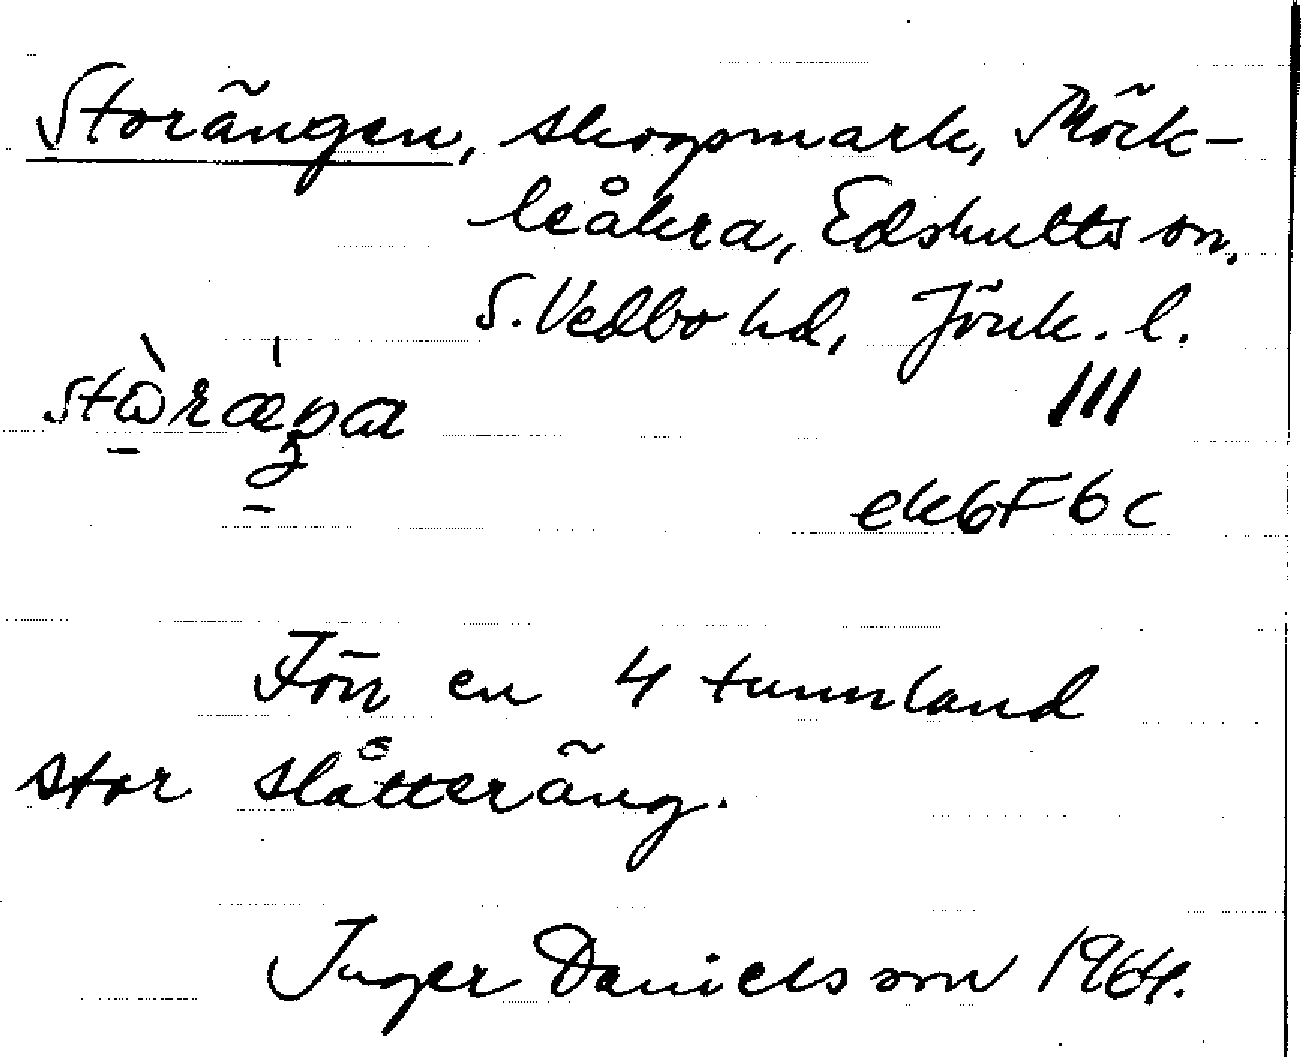 Storängen, skogsmark, Möck-
leåkra, Edshults sn.
S. Vedbo hd, Jönk. l.
III
ek6F6c
Förr en 4 tunnland
stor slåtteräng.
Inger Danielsson 1964.